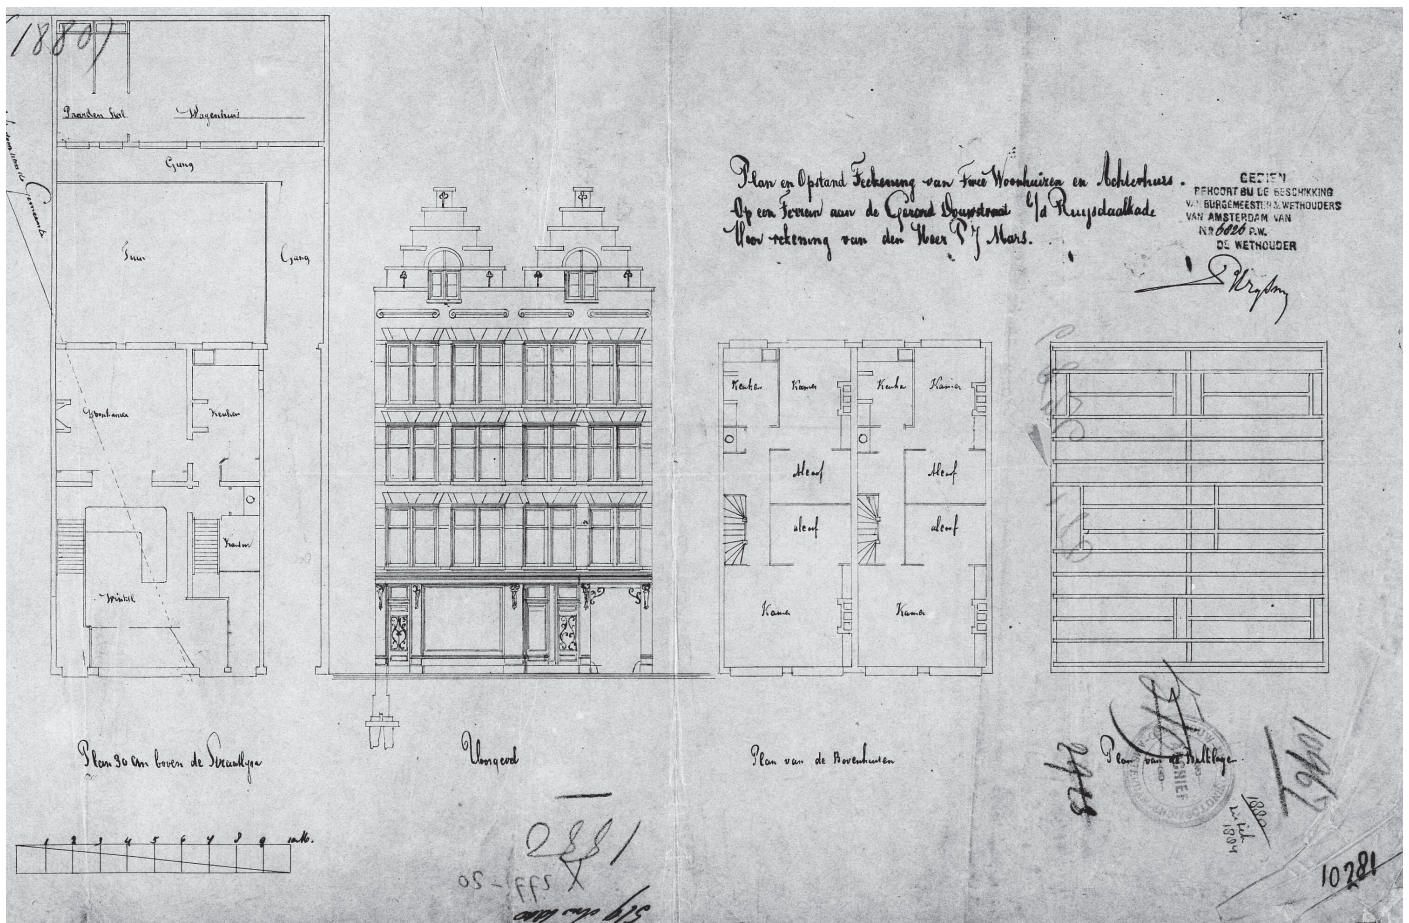 1880
Paarden Stal
Wagenhuis
Gang
Tuin
Gang
Woonkamer
Keuken
Keuken
Winkel
Plan 30 cm boven de Straatlyn
1 2 3 4 5 6 7 8 9 10 M.
Voorgevel
Plan en Opstand Teekening van Twee Woonhuizen en Achterhuis.
Op een Terrein aan de Gerard Douwstraat b/d Ruysdaalkade
Voor rekening van den Heer P J Mars.
GEZIEN
BEHOORT BIJ DE BESCHIKKING
VAN BURGEMEESTER & WETHOUDERS
VAN AMSTERDAM VAN
No 6826 P.W.
DE WETHOUDER
Keuken
Kamer
Keuken
Kamer
Alcoof
Alcoof
alcoof
alcoof
Kamer
Kamer
Plan van de Bovenhuizen
Plan van de Balklagen
ARCHIEF
2723
10967
1880
1884
1880
X 277-20
10281